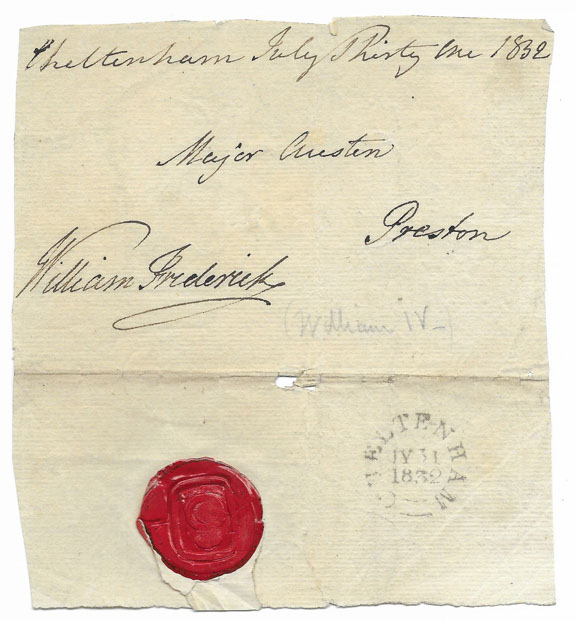 Cheltenham July Thirty One 1832
Major Austen
Preston
William Frederick
(William IV-)
CHELTENHAM
JY 31
1832